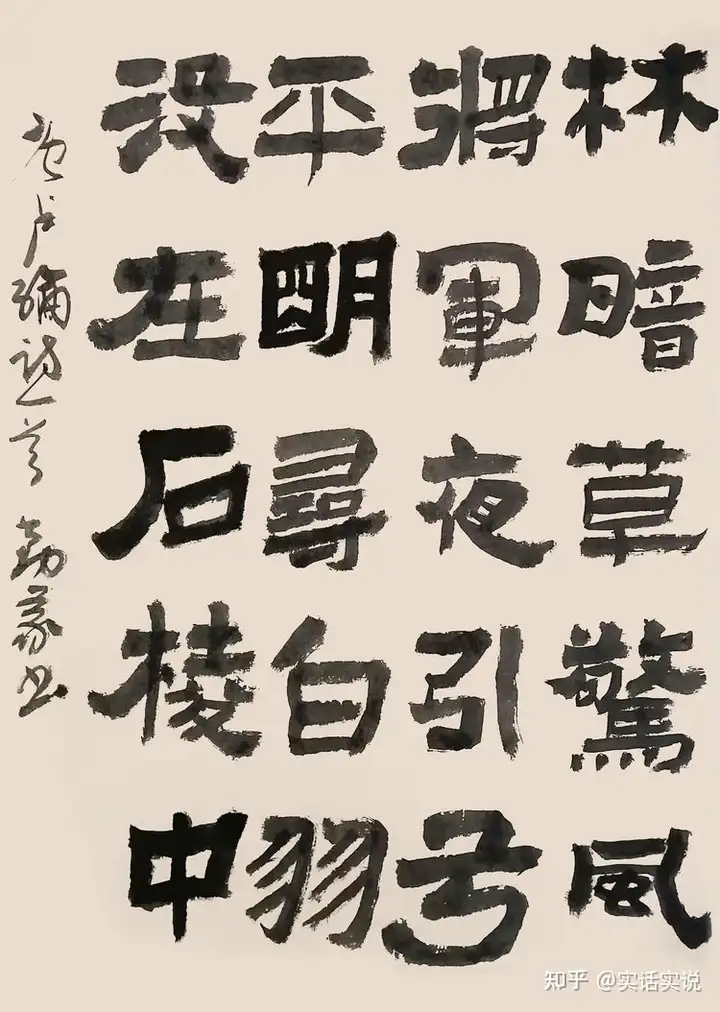 林暗草驚風
將軍夜引弓
平明尋白羽
没在石棱中
唐卢綸诗一首 书
知乎 @实话实说